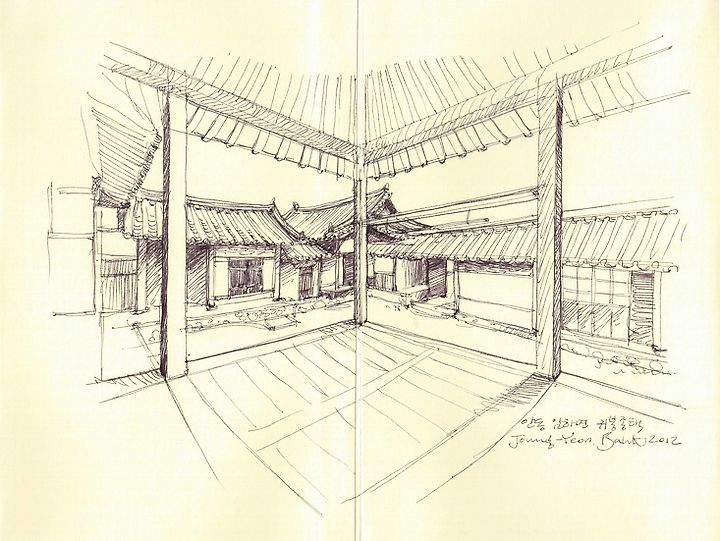 안동 임하면 귀봉종택
Joung-Yeon. Bahk 2012